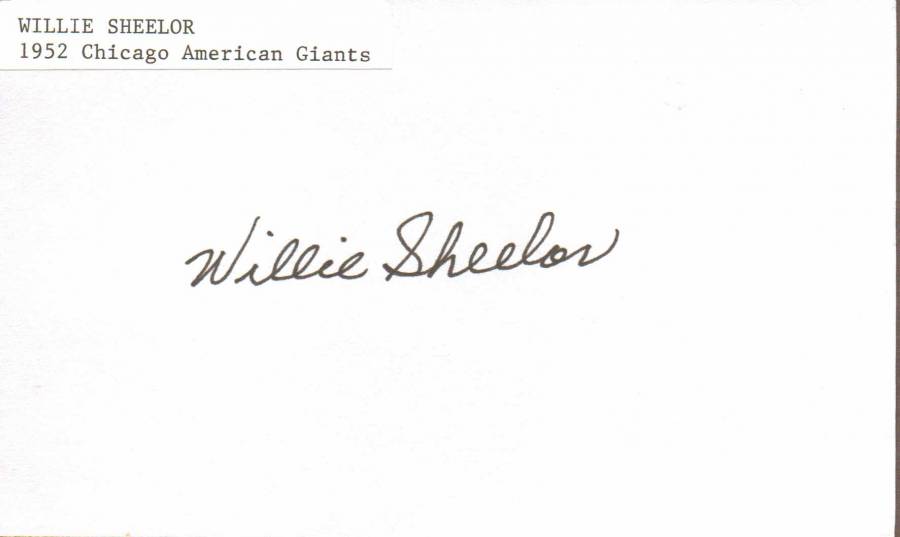 WILLIE SHEELOR
1952 Chicago American Giants
Willie Sheelor